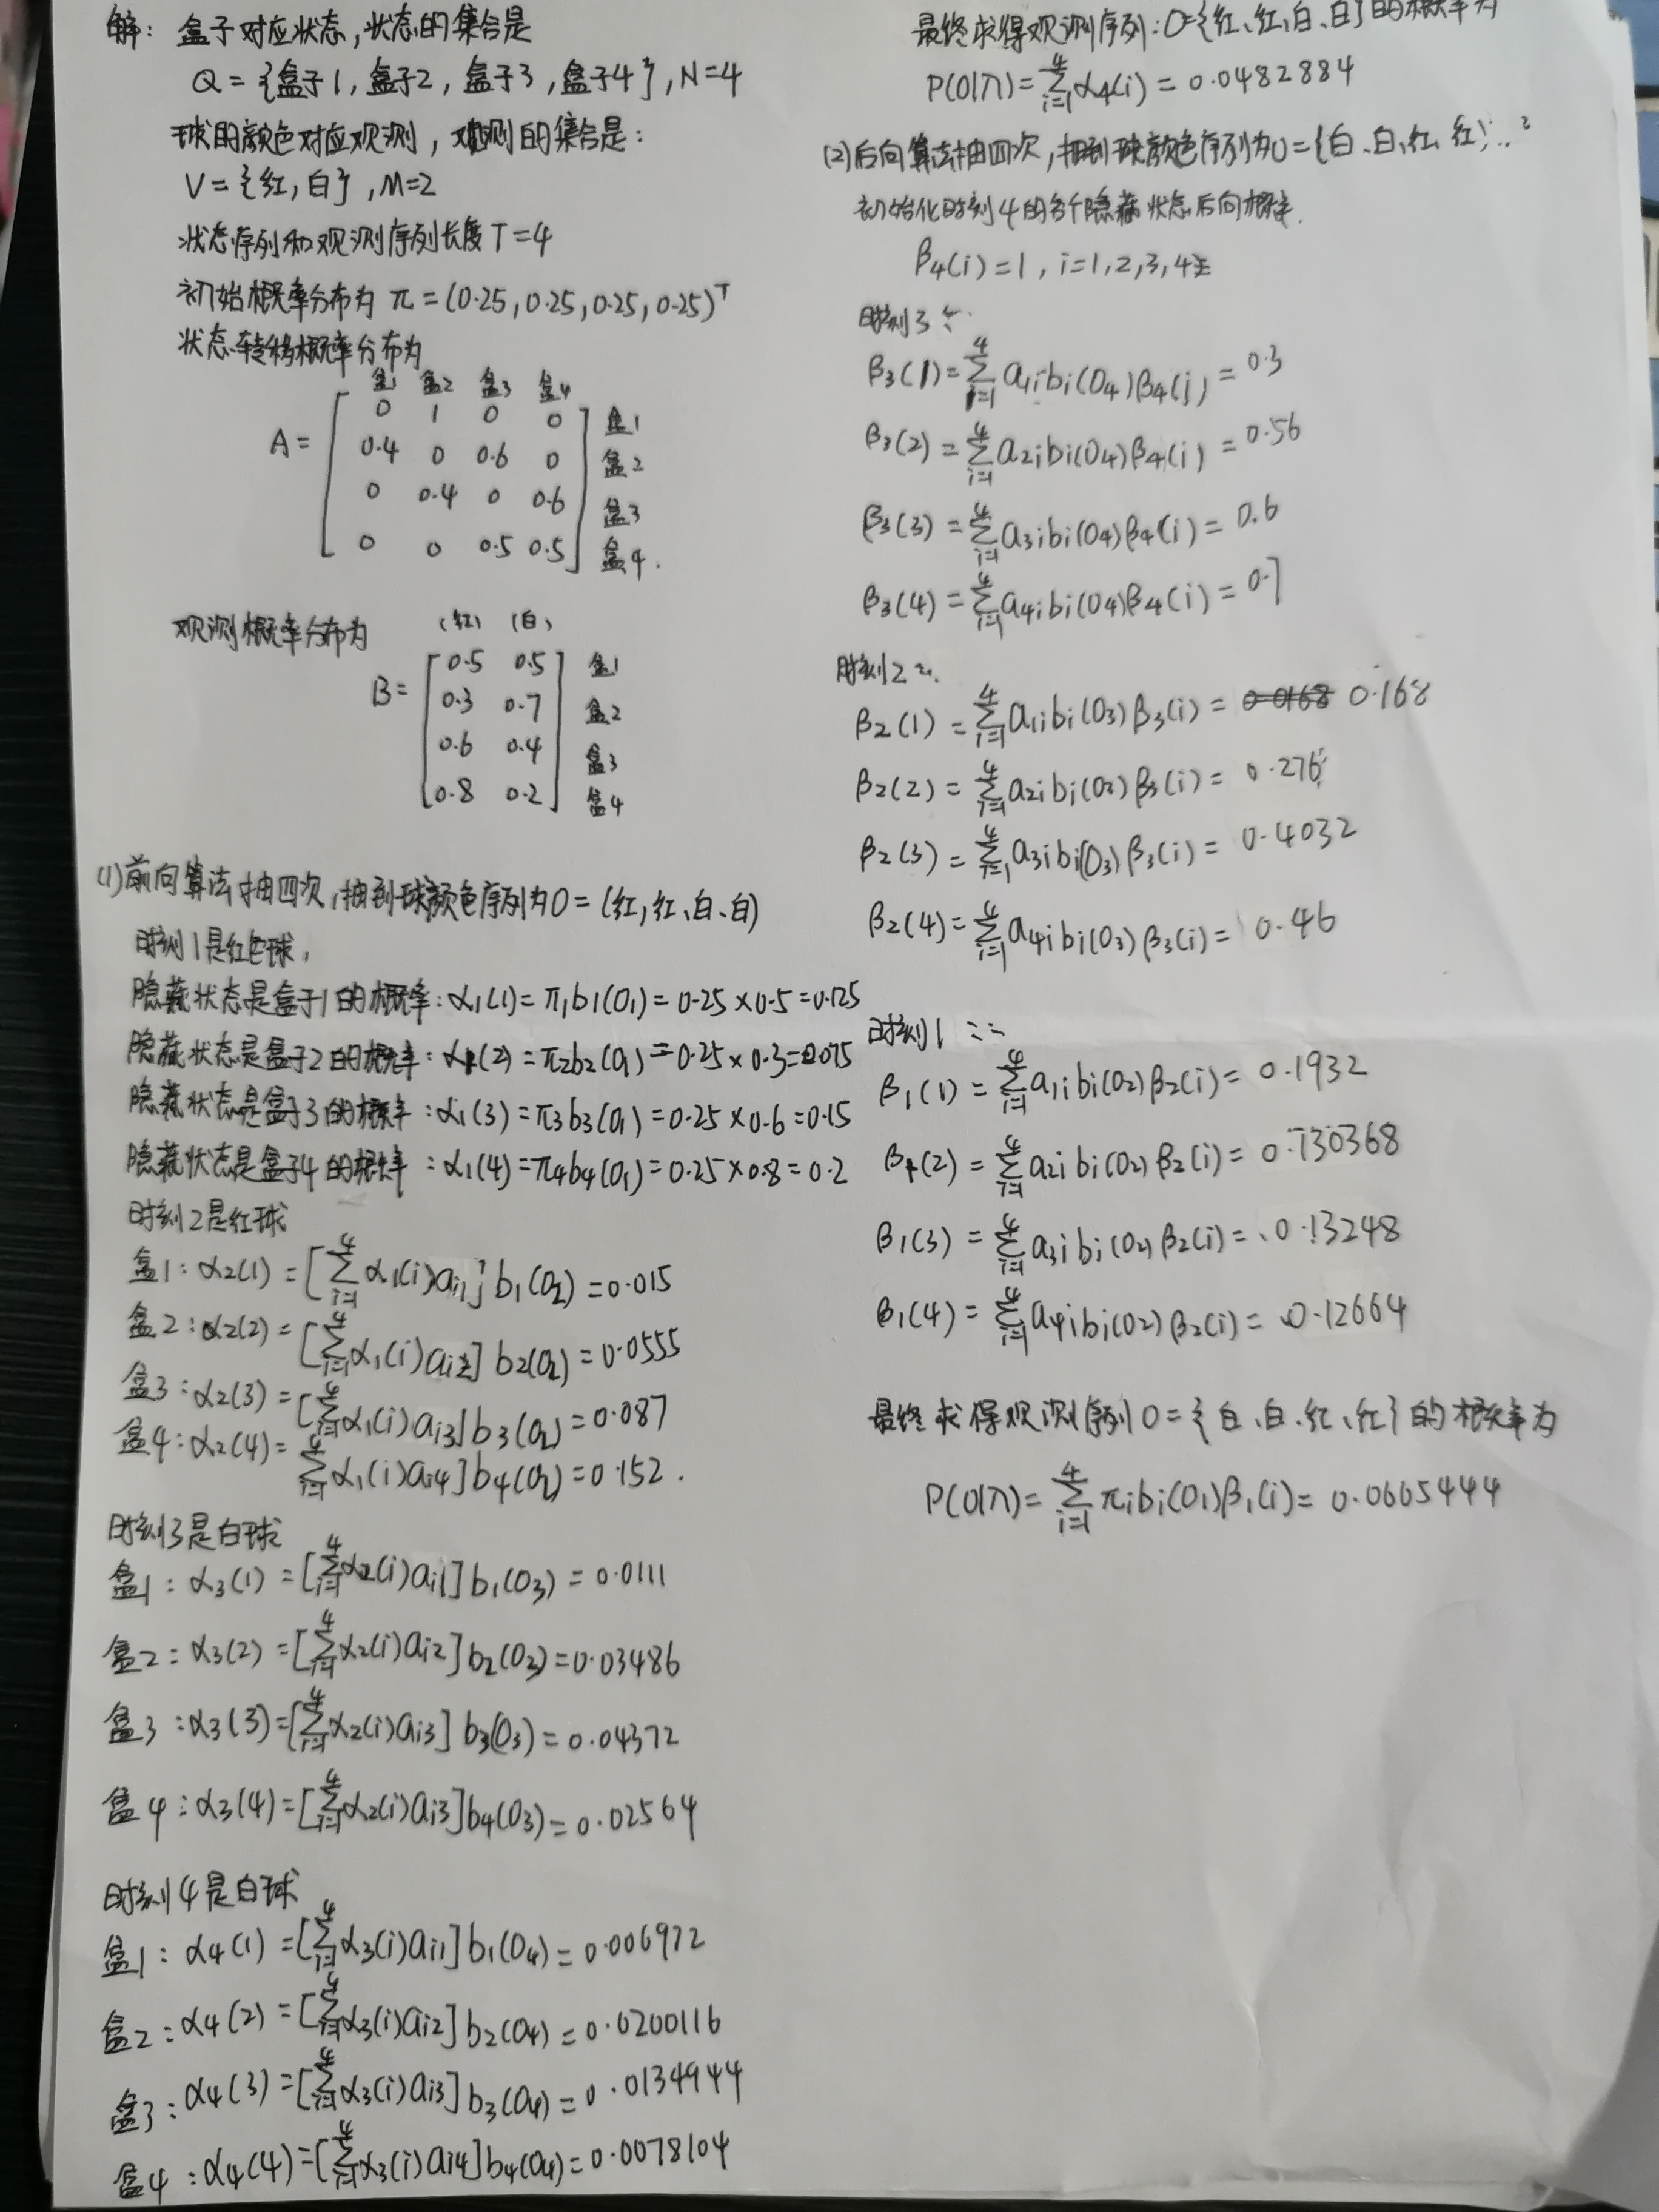 解：盒子对应状态，状态的集合是
Q={盒子1，盒子2，盒子3，盒子4}，N=4
球的颜色对应观测，观测的集合是：
V={红，白}，M=2
状态序列和观测序列长度T=4
初始概率分布为 π=(0.25,0.25,0.25,0.25)ᵀ
状态转移概率分布为
盒1 盒2 盒3 盒4
A=
0 1 0 0 盒1
0.4 0 0.6 0 盒2
0 0.4 0 0.6 盒3
0 0 0.5 0.5 盒4.
观测概率分布为
(红) (白)
B=
0.5 0.5 盒1
0.3 0.7 盒2
0.6 0.4 盒3
0.8 0.2 盒4
(1)前向算法抽四次，抽到球颜色序列为O=(红,红、白、白)
时刻1是红色球，
隐藏状态是盒子1的概率：α₁(1)=π₁b₁(O₁)=0.25×0.5=0.125
隐藏状态是盒子2的概率：α₁(2)=π₂b₂(O₁)=0.25×0.3=0.075
隐藏状态是盒子3的概率：α₁(3)=π₃b₃(O₁)=0.25×0.6=0.15
隐藏状态是盒子4的概率：α₁(4)=π₄b₄(O₁)=0.25×0.8=0.2
时刻2是红球
盒1：α₂(1)=[∑⁴ᵢ₌₁α₁(i)aᵢ₁]b₁(O₂)=0.015
盒2：α₂(2)=[∑⁴ᵢ₌₁α₁(i)aᵢ₂]b₂(O₂)=0.0555
盒3：α₂(3)=[∑⁴ᵢ₌₁α₁(i)aᵢ₃]b₃(O₂)=0.087
盒4：α₂(4)=∑⁴ᵢ₌₁α₁(i)aᵢ₄]b₄(O₂)=0.152.
时刻3是白球
盒1：α₃(1)=[∑⁴ᵢ₌₁α₂(i)aᵢ₁]b₁(O₃)=0.0111
盒2：α₃(2)=[∑⁴ᵢ₌₁α₂(i)aᵢ₂]b₂(O₃)=0.03486
盒3：α₃(3)=[∑⁴ᵢ₌₁α₂(i)aᵢ₃]b₃(O₃)=0.04372
盒4：α₃(4)=[∑⁴ᵢ₌₁α₂(i)aᵢ₃]b₄(O₃)=0.02564
时刻4是白球
盒1：α₄(1)=[∑⁴ᵢ₌₁α₃(i)aᵢ₁]b₁(O₄)=0.006972
盒2：α₄(2)=[∑⁴ᵢ₌₁α₃(i)aᵢ₂]b₂(O₄)=0.0200116
盒3：α₄(3)=[∑⁴ᵢ₌₁α₃(i)aᵢ₃]b₃(O₄)=0.0134944
盒4：α₄(4)=[∑⁴ᵢ₌₁α₃(i)aᵢ₄]b₄(O₄)=0.0078104
最终求得观测序列：O={红、红、白、白}的概率为
P(O|λ)=∑⁴ᵢ₌₁α₄(i)=0.0482884
(2)后向算法抽四次，抽到球颜色序列为O={白、白、红、红}
初始化时刻4的各个隐藏状态后向概率.
β₄(i)=1，i=1,2,3,4
时刻3：
β₃(1)=∑⁴ᵢ₌₁a₁ᵢbᵢ(O₄)β₄(i)=0.3
β₃(2)=∑⁴ᵢ₌₁a₂ᵢbᵢ(O₄)β₄(i)=0.56
β₃(3)=∑⁴ᵢ₌₁a₃ᵢbᵢ(O₄)β₄(i)=0.6
β₃(4)=∑⁴ᵢ₌₁a₄ᵢbᵢ(O₄)β₄(i)=0.7
时刻2：
β₂(1)=∑⁴ᵢ₌₁a₁ᵢbᵢ(O₃)β₃(i)=0.168
β₂(2)=∑⁴ᵢ₌₁a₂ᵢbᵢ(O₃)β₃(i)=0.276
β₂(3)=∑⁴ᵢ₌₁a₃ᵢbᵢ(O₃)β₃(i)=0.4032
β₂(4)=∑⁴ᵢ₌₁a₄ᵢbᵢ(O₃)β₃(i)=0.46
时刻1：
β₁(1)=∑⁴ᵢ₌₁a₁ᵢbᵢ(O₂)β₂(i)=0.1932
β₁(2)=∑⁴ᵢ₌₁a₂ᵢbᵢ(O₂)β₂(i)=0.130368
β₁(3)=∑⁴ᵢ₌₁a₃ᵢbᵢ(O₂)β₂(i)=0.13248
β₁(4)=∑⁴ᵢ₌₁a₄ᵢbᵢ(O₂)β₂(i)=0.12664
最终求得观测序列O={白、白、红、红}的概率为
P(O|λ)=∑⁴ᵢ₌₁πᵢbᵢ(O₁)β₁(i)=0.0665444